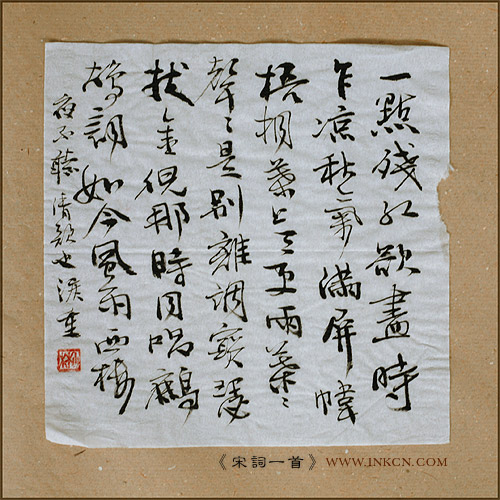 一點殘紅欲盡時
乍涼秋氣滿屏幃
梧桐葉上三更雨葉〻
聲〻是別離調寶瑟
撥金猊那時同唱鷓
鴣詞如今風雨西樓
夜不聽清歌也淚垂
《宋詞一首》 WWW.INKCN.COM